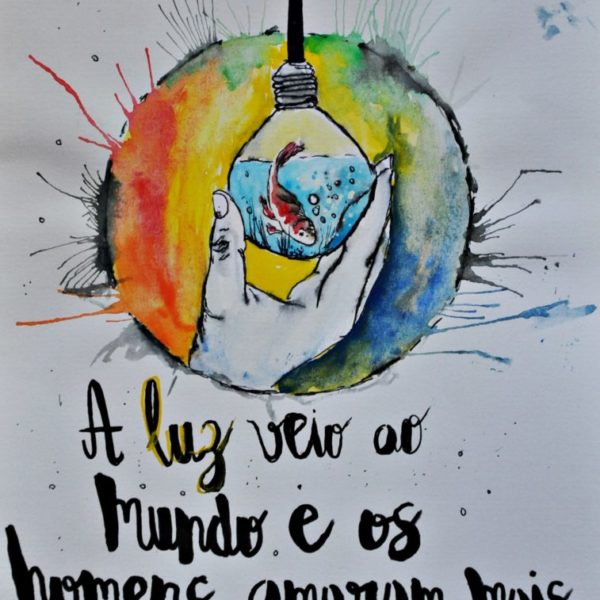 A luz veio ao
mundo e os
homens amaram mais